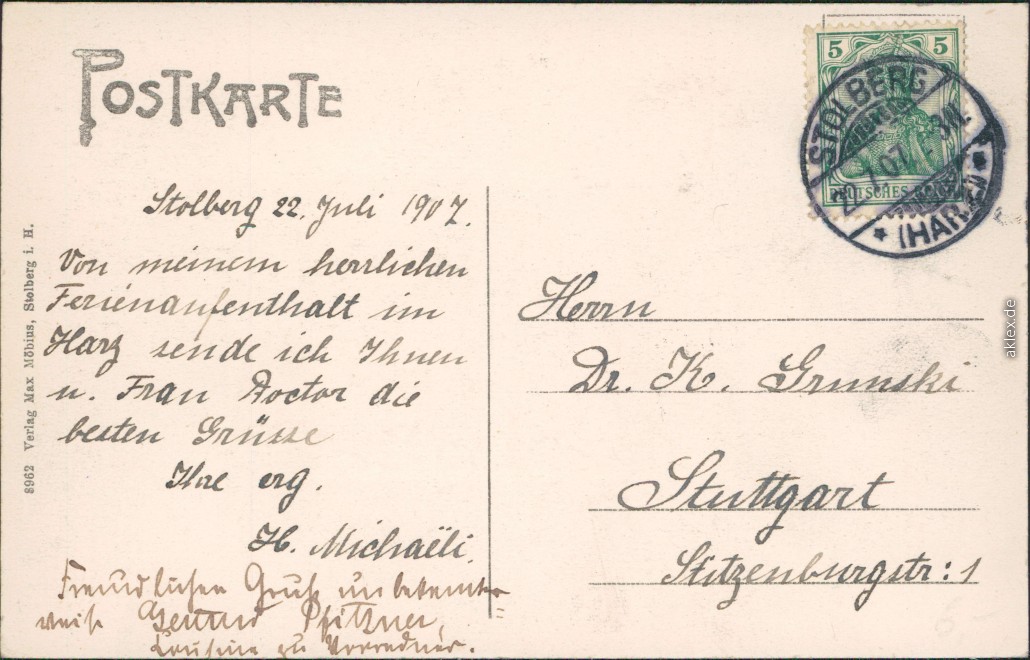 POSTKARTE
5 5
DEUTSCHES REICH
STOLBERG
22.7.07. 3-4N.
* (HARZ) *
Stolberg 22. Juli 1907.
Von meinem herrlichen
Ferienaufenthalt im
Harz sende ich Ihnen
u. Frau Doctor die
besten Grüsse
Ihre erg.
H. Michaëli.
Freundlichen Gruß unbekannter-
weise Pfitzner,
Cousine zu
Herrn
Dr. K. Grunski
Stuttgart
Stitzenburgstr: 1
8962 Verlag Max Möbius, Stolberg i. H.
aklex.de